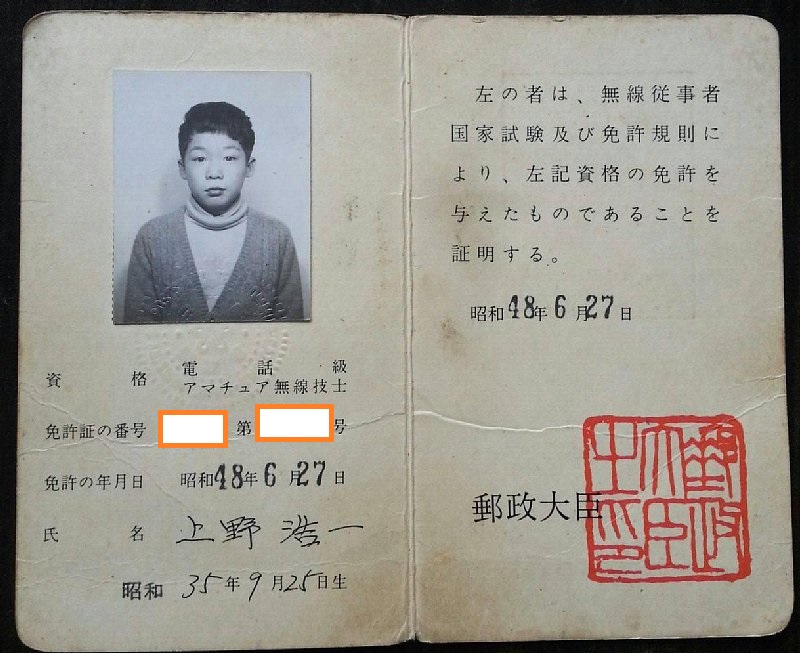 資格 電話級
アマチュア無線技士
免許証の番号 第 号
免許の年月日 昭和48年6月27日
氏名 上野浩一
昭和35年9月25日生
左の者は、無線従事者
国家試験及び免許規則に
より、左記資格の免許を
与えたものであることを
証明する。
昭和48年6月27日
郵政大臣
郵政大臣之印